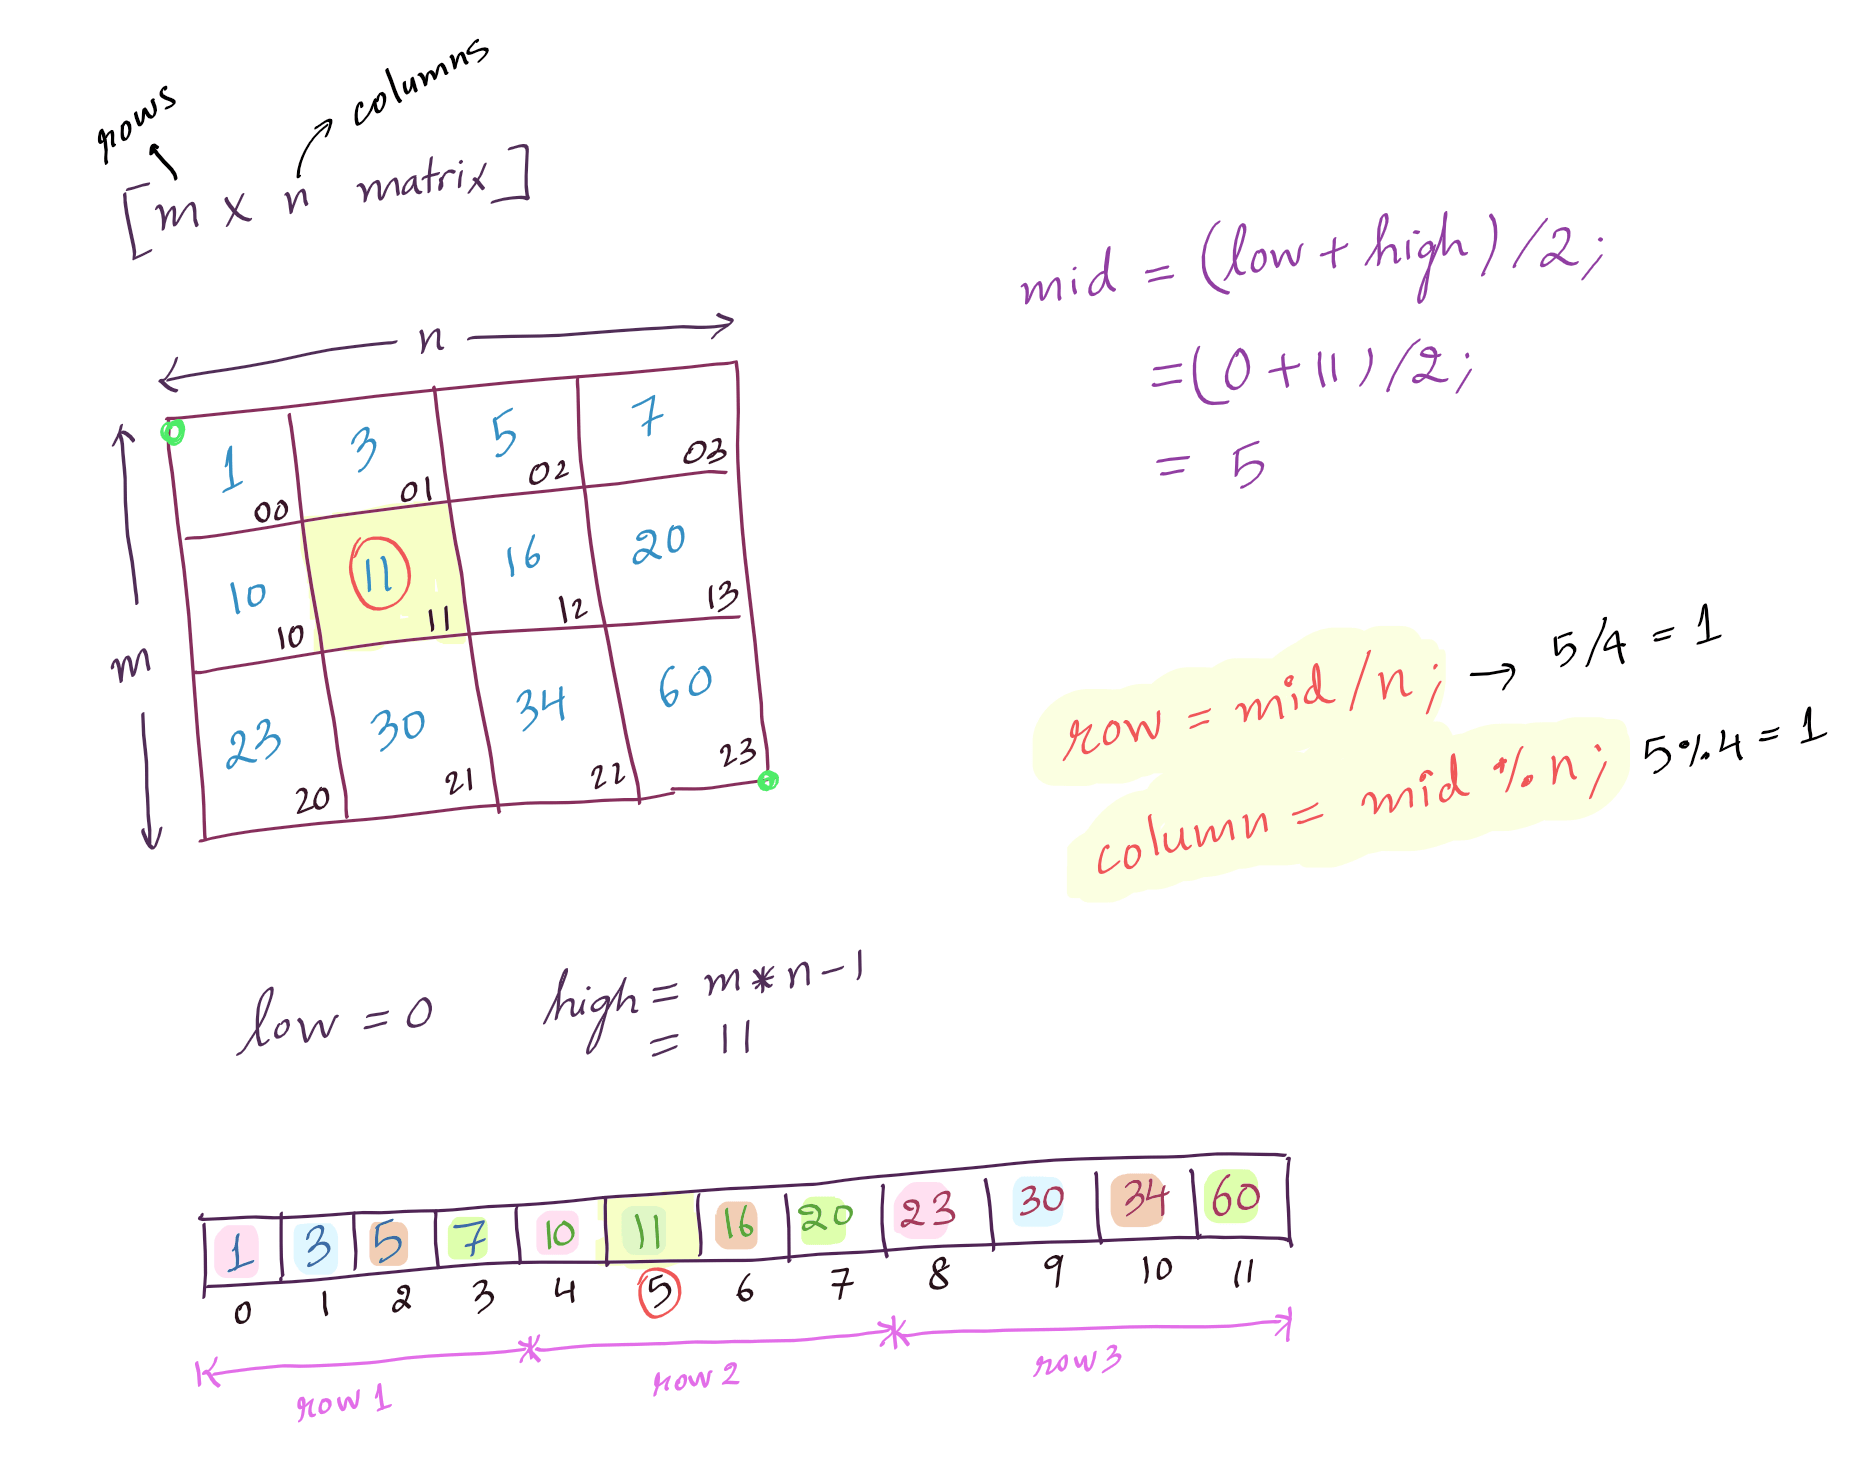 rows
columns
[m x n matrix]
mid = (low + high) / 2;
= (0 + 11) / 2;
= 5
n
m
1 3 5 7
00 01 02 03
10 11 16 20
10 11 12 13
23 30 34 60
20 21 22 23
row = mid / n; → 5/4 = 1
column = mid % n; 5%4 = 1
low = 0 high = m * n - 1
= 11
1 3 5 7 10 11 16 20 23 30 34 60
0 1 2 3 4 5 6 7 8 9 10 11
row 1 row 2 row 3